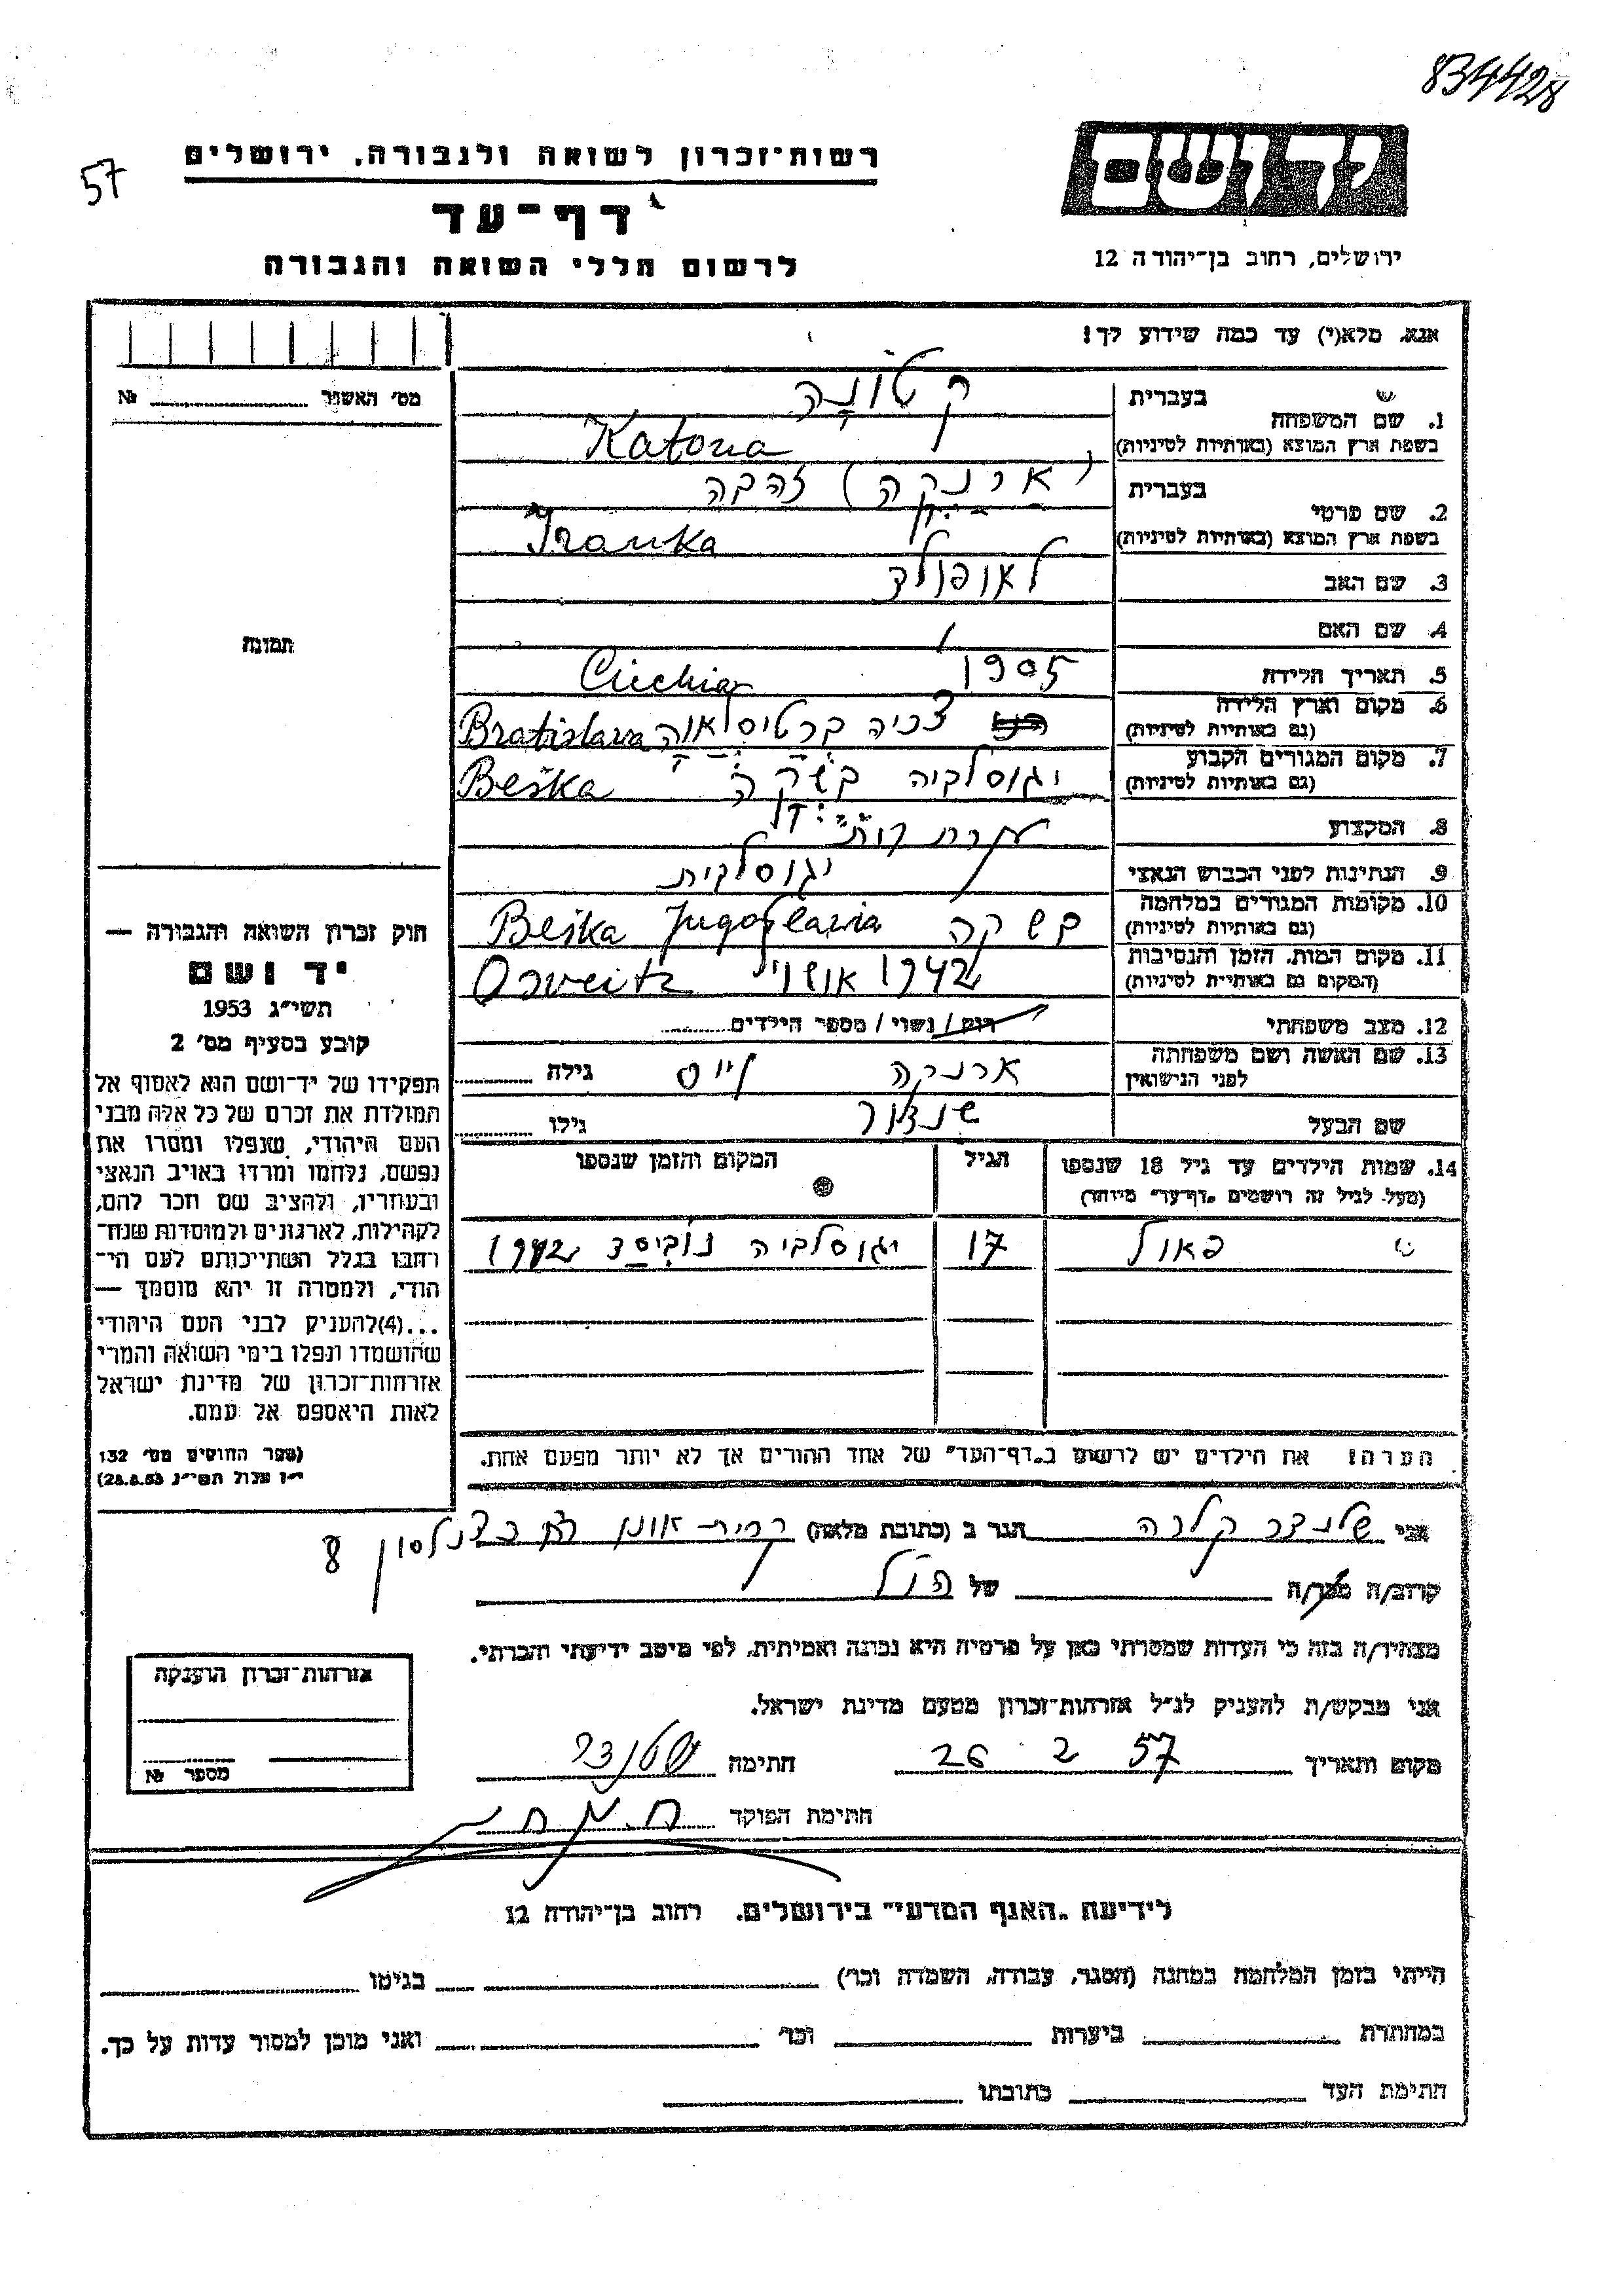 834428
57
רשות־זכרון לשואה ולגבורה, ירושלים
דף־עד
לרשום חללי השואה והגבורה
יד ושם
ירושלים, רחוב בן־יהודה 12
אנא, מלא(י) עד כמה שידוע לך!
מס׳ האשור № 
1. שם המשפחה בעברית קטונה
בשפת ארץ המוצא (באותיות לטיניות) Katona
2. שם פרטי בעברית (ארנקה) זהבה
בשפת ארץ המוצא (באותיות לטיניות) Iranka
3. שם האב לאופולד
4. שם האם
5. תאריך הלידה 1905
6. מקום וארץ הלידה
(גם באותיות לטיניות) צכיה ברטיסלאוה Bratislava
7. מקום המגורים הקבוע
(גם באותיות לטיניות) יגוסלביה בשקה Beška
8. המקצוע עקרת בית
9. הנתינות לפני הכבוש הנאצי יגוסלבית
10. מקומות המגורים במלחמה
(גם באותיות לטיניות) בשקה Beška Jugoslavia
11. מקום המות, הזמן והנסיבות
(המקום גם באותיות לטיניות) 1942 אושויץ Osveitz
12. מצב משפחתי רווק / נשוי / מספר הילדים
13. שם האשה ושם משפחתה
לפני הנישואין ארנקה וייס גילה
שם הבעל שנדור גילו
14. שמות הילדים עד גיל 18 שנספו
(מעל לגיל זה רושמים „דף־עד״ מיוחד)
הגיל
המקום והזמן שנספו
פאול 17 יגוסלביה נוביסד 1942
הערה! את הילדים יש לרשום ב„דף־העד״ של אחד ההורים אך לא יותר מפעם אחת.
תמונה
חוק זכרון השואה והגבורה —
יד ושם
תשי״ג 1953
קובע בסעיף מס׳ 2
תפקידו של יד־ושם הוא לאסוף אל
המולדת את זכרם של כל אלה מבני
העם היהודי, שנפלו ומסרו את
נפשם, נלחמו ומרדו באויב הנאצי
ובעוזריו, ולהציב שם וזכר להם,
לקהילות, לארגונים ולמוסדות שנח־
רבו בגלל השתייכותם לעם הי־
הודי, ולמטרה זו יהא מוסמך —
...(4)להעניק לבני העם היהודי
שהושמדו ונפלו בימי השואה והמרי
אזרחות־זכרון של מדינת ישראל
לאות היאספם אל עמם.
(ספר החוקים מס׳ 132
י״ז אלול תשי״ג 28.8.53)
אני קלרה הגר ב (כתובת מלאה) קרית אונו 8
קרוב/ה מכר/ה של הנ״ל
מצהיר/ה בזה כי העדות שמסרתי כאן על פרטיה היא נכונה ואמיתית, לפי מיטב ידיעתי והכרתי.
אני מבקש/ת להעניק לנ״ל אזרחות־זכרון מטעם מדינת ישראל.
מקום ותאריך 26 2 57 חתימה
חתימת הפוקד
אזרחות־זכרון הוענקה
מספר №
לידיעת „האגף המדעי״ בירושלים, רחוב בן־יהודה 12
הייתי בזמן המלחמה במחנה (הסגר, עבודה, השמדה וכו׳) בגיטו
במחתרת ביערות וכו׳ ואני מוכן למסור עדות על כך.
חתימת העד כתובתו